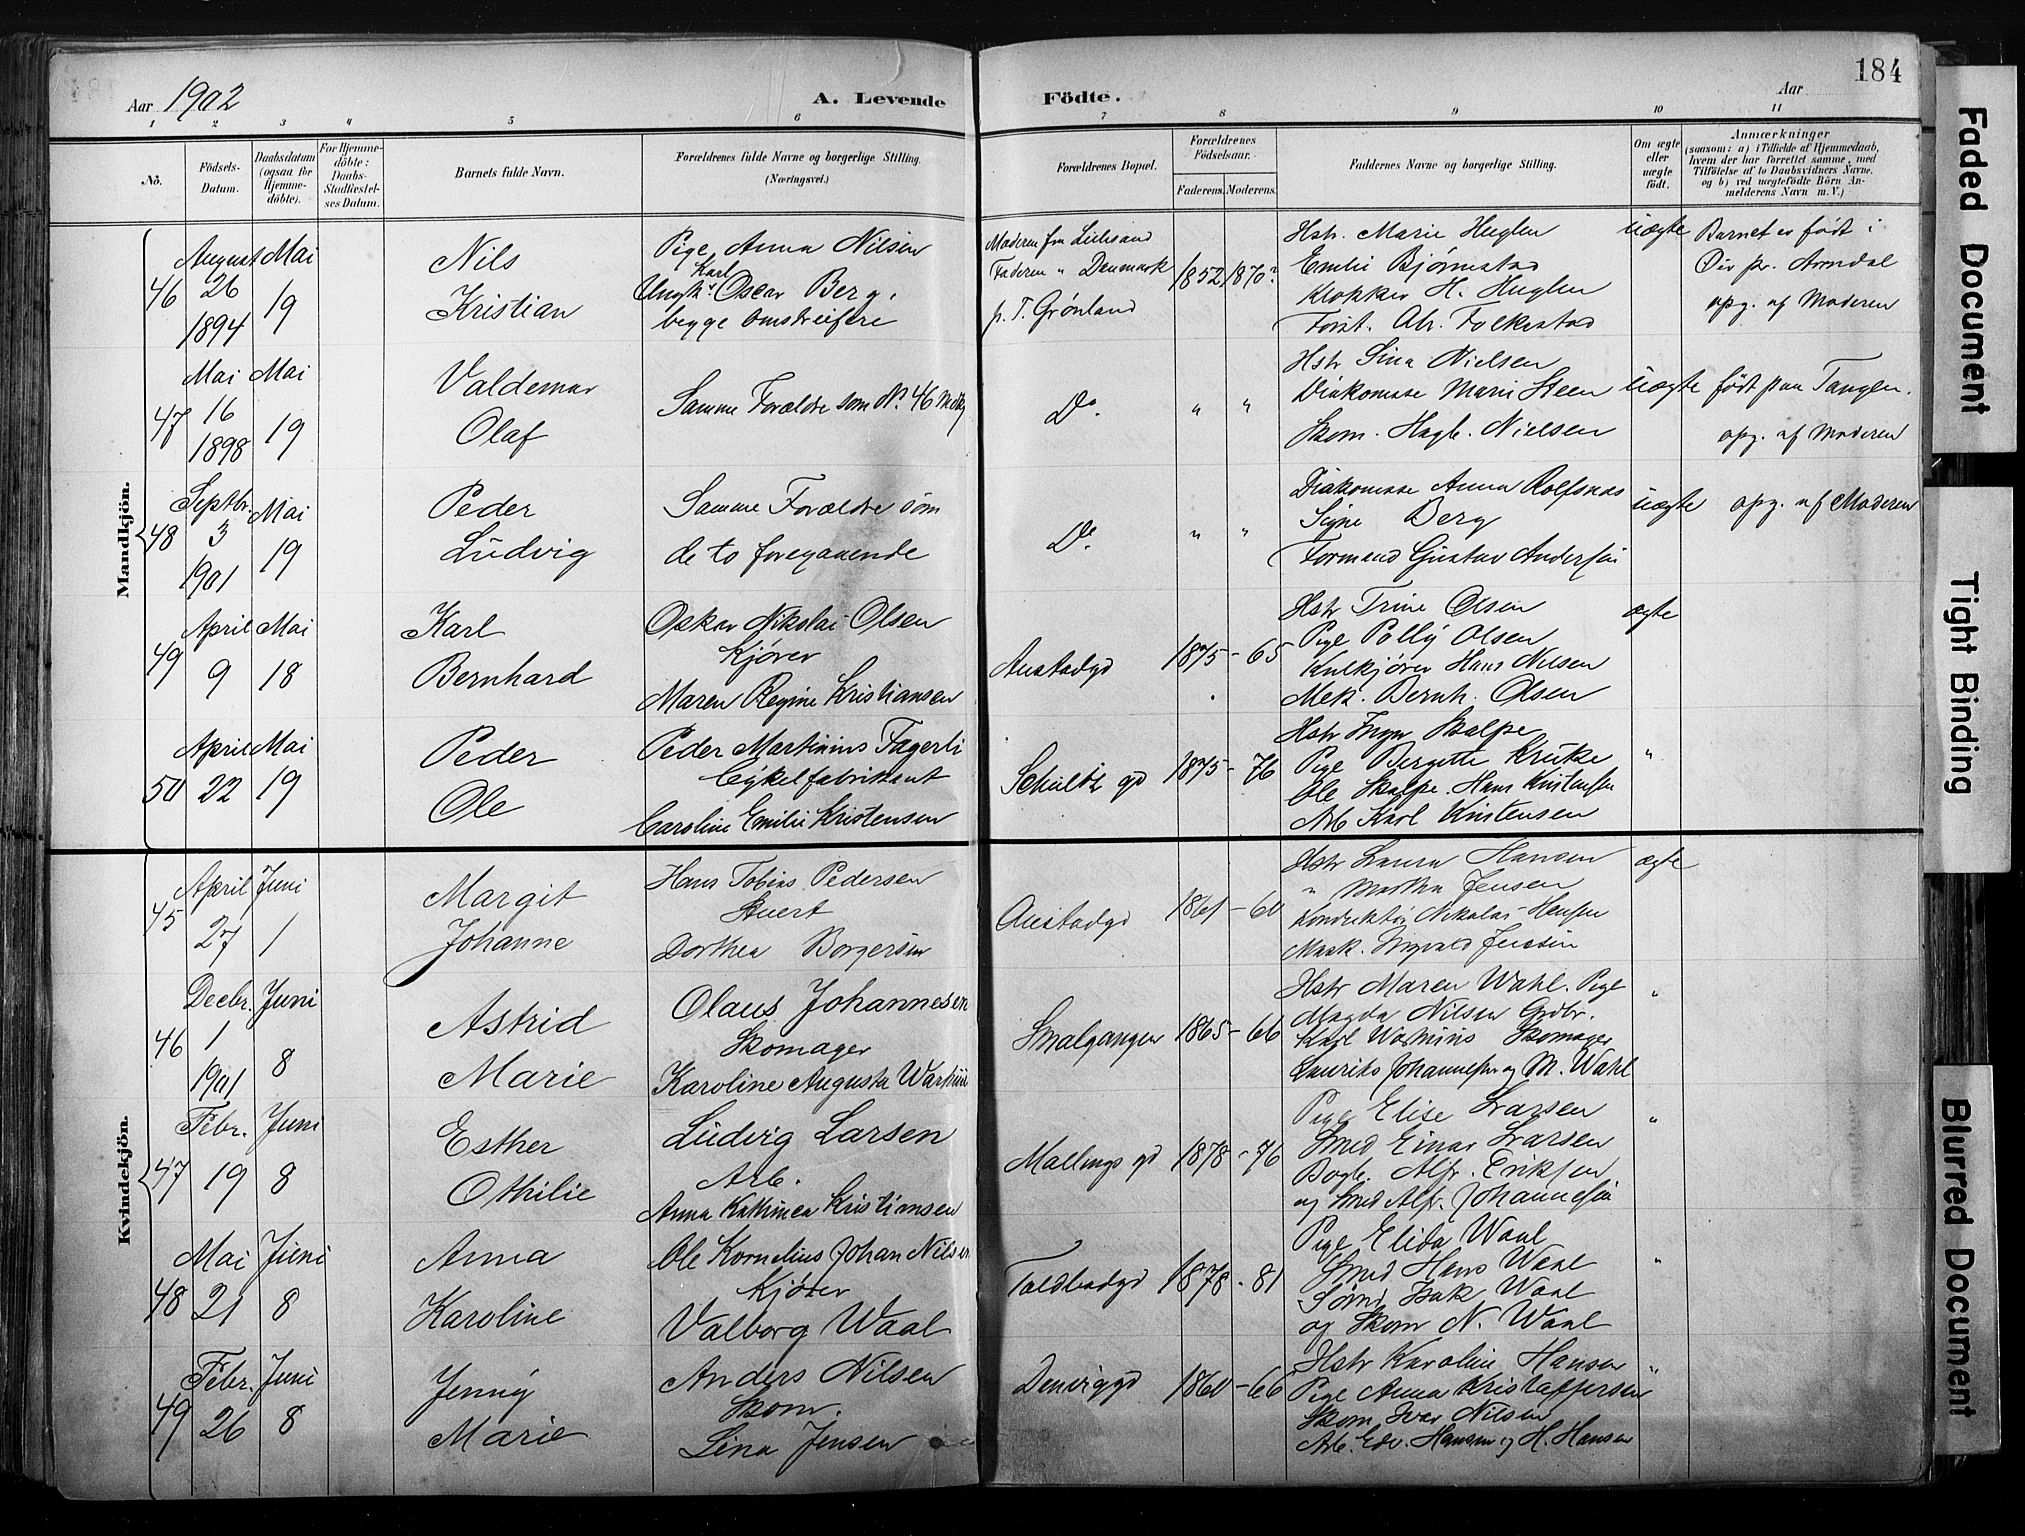 184
Aar 1902
A. Levende
Födte.
Aar
1 2 3 4 5 6 7 8 9 10 11
No.
Födsels-Datum.
Daabsdatum (ogsaa for Hjemme-döbte).
For Hjemme-döbte: Daabs-Stadfæstel-ses Datum.
Barnets fulde Navn.
Forældrenes fulde Navne og borgerlige Stilling.
(Næringsvei.)
Forældrenes Bopæl.
Forældrenes Födselsaar.
Faderens. Moderens.
Faddernes Navne og borgerlige Stilling.
Om ægte eller uægte födt.
Anmærkninger
(saasom: a) i Tilfælde af Hjemmedaab, hvem der har forrettet samme, med Tilföielse af to Daabsvidners Navne, og b) ved uægtefödte Börn An-melderens Navn m. V.)
Mandkjön.
46
August 26 1894
Mai 19
Nils
Kristian
Pige Anna Nilsen
Ungk. Karl Oscar Berg,
begge Omstreifere
Moderen fra
Faderen " Danmark
p. T. Grønland
1852 1870?
Hstr. Marie Huglen
Emilie Bjørnstad
Klokker H. Huglen
Forst. Abr. Folkestad
uægte
Barnet er født i
pr. Arendal
opg. af Moderen
47
Mai 16 1898
Mai 19
Valdemar
Olaf
Samme Forældre som No. 46
Do.
" "
Hstr Lina Nielsen
Diakonisse Marie Steen
Skom. Hagb. Nielsen
uægte
født paa Tangen.
opg. af Moderen
48
Septbr. 3 1901
Mai 19
Peder
Ludvig
Samme Forældre som
de to foregaaende
Do.
" "
Diakonisse Anna Rolfsnæs
Signe Berg
Formand Gustav Andersen
uægte
opg. af Moderen
49
April 9
Mai 18
Karl
Bernhard
Oskar Nikolai Olsen
Kjører
Maren Regine Kristiansen
Austadgd
1875 - 65
Hstr Trine Olsen
Pige Polly Olsen
Kulkjører Hans Nilsen
Mek. Bernh. Olsen
ægte
50
April 22
Mai 19
Peder
Ole
Peder Martinius Fagerli
Cykelfabrikant
Caroline Emilie Kristensen
Schultz gd
1875 - 76
Hstr Inger Skalpe
Pige Bergette Kruke
Ole Skalpe. Hans Kristensen
Arb Karl Kristensen
"
Kvindekjön.
45
April 27
Juni 1
Margit
Johanne
Hans Tobias Pedersen
Stuert
Dorthea Borgersen
Austadgd
1861 - 60
Hstr Laura Hansen
" Martha Jensen
Konduktør Nikolai Hansen
Mask. Ingvald Jensen
ægte
46
Decbr. 1 1901
Juni 8
Astrid
Marie
Olaus Johannesen
Skomager
Karoline Augusta
Smalgangen
1865 - 66
Hstr Maren Wahl. Pige
Magda Nilsen Grdbr.
Karl Skomager
Lauritz Johannesen og M. Wahl
"
47
Febr. 19
Juni 8
Esther
Othilie
Ludvig Larsen
Arb.
Anna Kathinca Kristiansen
Mallings gd
1878 - 76
Pige Elise Larsen
Smed Einar Larsen
Bogb. Alfr. Eriksen
og Smed Alfr. Johannesen
"
48
Mai 21
Juni 8
Anna
Karoline
Ole Kornelius Johan Nilsen
Kjører
Valborg Waal
Toldbodgd
1878 - 81
Pige Elida Waal
Smed Hans Waal
Sømd Isak Waal
og Skom N. Waal
"
49
Febr. 26
Juni 8
Jenny
Marie
Anders Nilsen
Skom.
Lina Jensen
1860 - 66
Hstr Karoline Hansen
Pige Anna Kristoffersen
Skom Ivar Nilsen
Arb. Edv. Hansen og H. Hansen
"
Faded Document
Tight Binding
Blurred Document